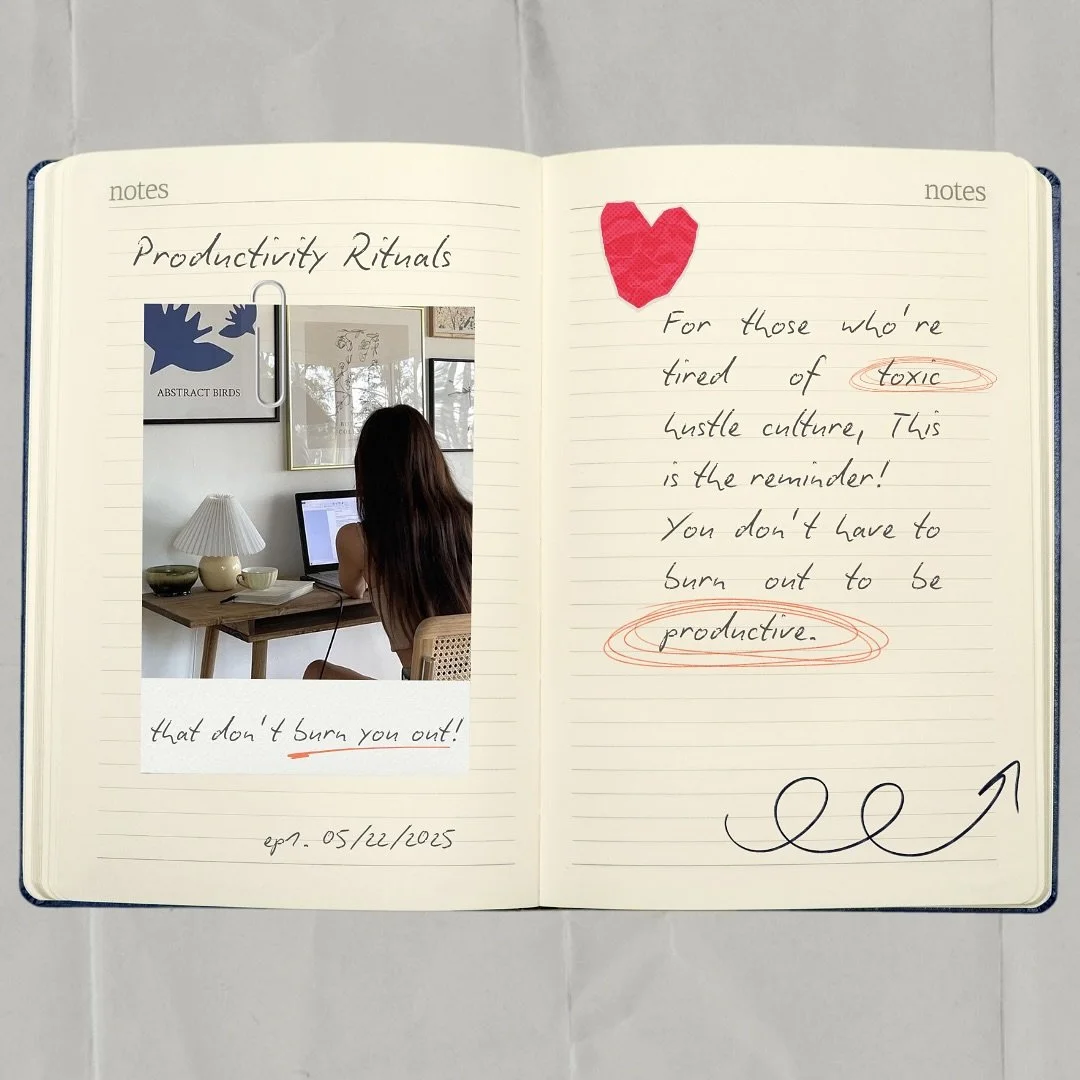 notes
Productivity Rituals
ABSTRACT BIRDS
that don't burn you out!
ep1. 05/22/2025
notes
For those who're
tired of toxic
hustle culture, This
is the reminder!
You don't have to
burn out to be
productive.